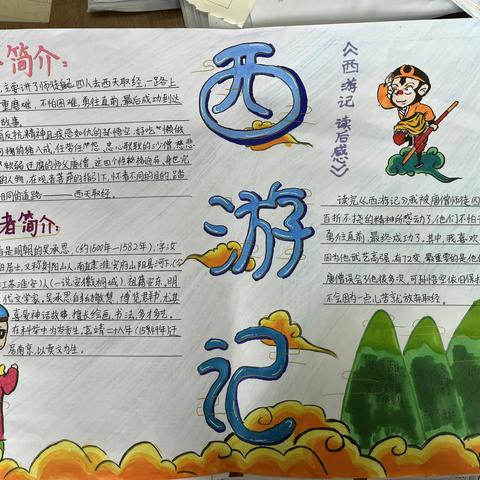 简介：
主要讲了师徒四人去西天取经，一路上
重磨难，不怕困难，勇往直前，最后成功到达
故事。
反抗精神且疾恶如仇的孙悟空，好吃懒做
的猪八戒，任劳任怨、忠心耿耿的沙僧，慈悲
的师父唐僧，这四个性格迥异，身世完
的人物，在观音菩萨的指引下，怀着不同的目的，踏
相同的道路——西天取经。
者简介：
是明朝的吴承恩，(约1500年—1582年)，字汝
阳居士，又称射阳山人，南直隶淮安府山阳县河下，(今
江苏淮安)人(一说安徽桐城)祖籍安东，明
代文学家，吴承恩自幼聪慧，博览群书，尤其
喜爱神话故事，擅长绘画，书法，多才多艺。
在科举中
居南京，以卖文为生。
西
游
记
《西游记 读后感》
读完《西游记》我被唐僧师徒四
百折不挠的精神所感动了，他们不怕
勇往直前，最终成功了。其中，我喜欢
因为他武艺高强，有72变，最重要的是他
唐僧误会了他很多次，可孙悟空依旧保
不会因为一点儿苦就放弃取经。